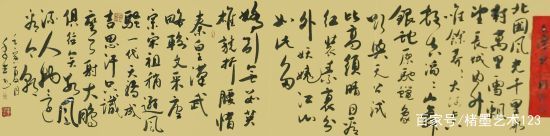 北国风光千里冰
封万里雪飘望
长城内外
惟余莽大河上
下顿失滔滔山舞
银蛇原驰蜡象
欲与天公试
比高须晴日看
红装素裹分
外妖娆江山
如此多
娇引无数英
雄竞折腰惜
秦皇汉武
略输文采唐
宗宋祖稍逊风
骚一代天骄成
吉思汗只识
弯弓射大雕
俱往矣数风
流人物还
看今朝
百家号/楮墨艺术123